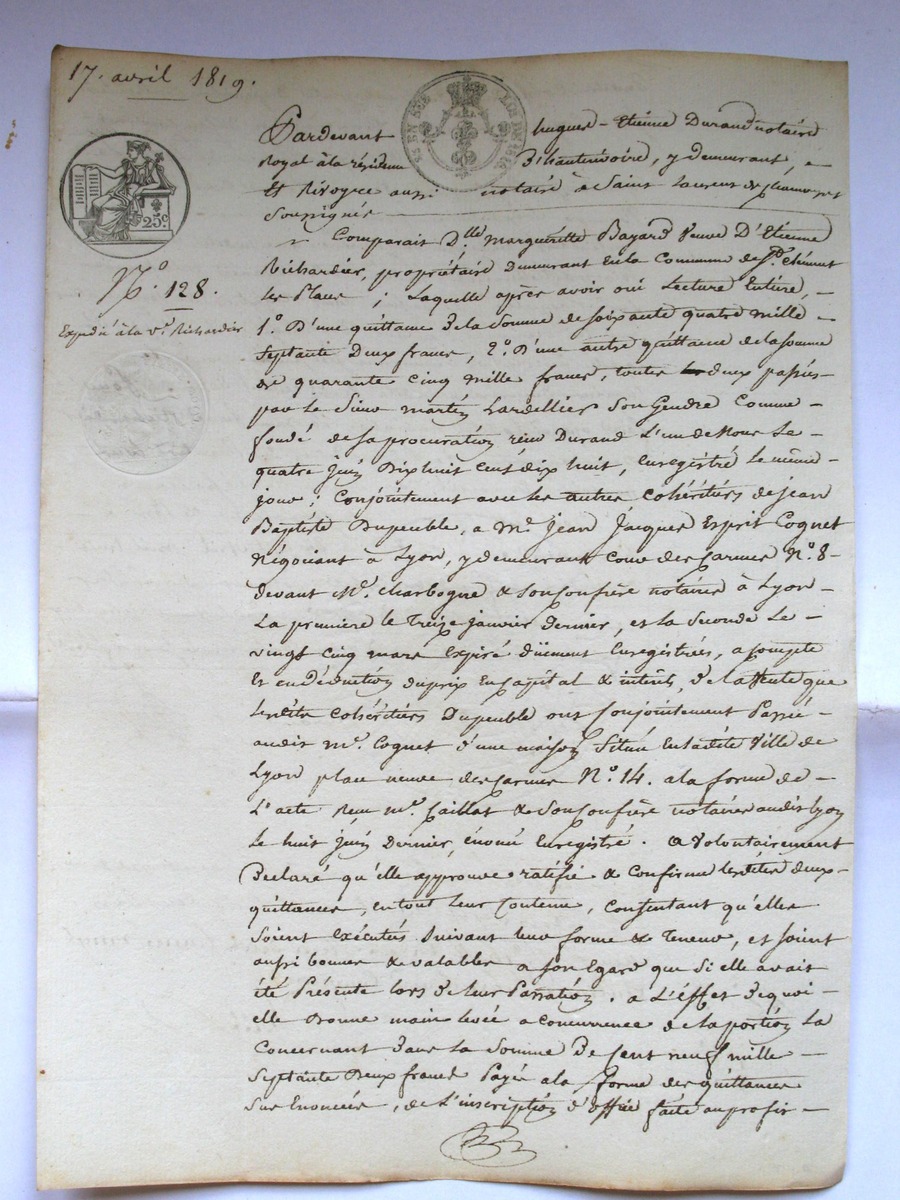 17. avril 1819.
Pardevant hugues-Etienne Durand notaire
Royal à la résidence D'hauterivoire, y demeurant
Et Rivoyre aussi notaire à Saint Laurent de chamousset
soussignés
Comparait D.lle marguerite Bayard Veuve D'Etienne
Richardier, propriétaire Demeurant En la Commune de St. Clément
les Places ; Laquelle après avoir oui Lecture Entière,
1.o D'une quittance de la somme de soixante quatre mille
septante Deux francs, 2.o D'une autre quittance de la somme
de quarante cinq mille francs, toutes deux passées
par le Sieur martin Lardellier son Gendre Comme
fondé de sa procuration reçue Durand L'un de Nous Le
quatre juin Dix huit cent dix huit, Enregistré le même
jour ; Conjointement avec les autres Cohéritiers de jean
Baptiste Dupeuble, a Mr. Jean Jacques Esprit Coquet
Négociant à Lyon, y demeurant Cour des Carmes N.o 8
devant Me. Charbogne & son Confrère notaires à Lyon
La première le Treize janvier dernier, et la seconde le
vingt cinq mars Expiré dûment Enregistrées, a compte
Et en déduction du prix En capital & intérêts, de la Vente que
lesdits Cohéritiers Dupeuble ont Conjointement Passée
audit mr. Coquet d'une maison située En ladite Ville de
Lyon place neuve des Carmes N.o 14. a la forme de
L'acte reçu me. Caillat & son Confrère notaires audit Lyon
le huit juin Dernier, Enregistré. a Volontairement
Déclaré qu'elle approuve ratifie & Confirme lesdites deux
quittances, en tout leur Contenu, Consentant qu'elles
soient exécutés suivant leur forme & Teneur, et soient
aussi bonnes & valables a son Egard que si elle avait
été Présente lors de leur Passation. a L'effet de quoi
elle Donne main levée a concurrence de la portion La
Concernant Dans la somme De Cent neuf mille
Septante Deux francs Payée a la forme des quittances
Sus Enoncées, de L'inscription d'office faite au profit
N.o 128.
Expedié à la ve. Richardier
25c.